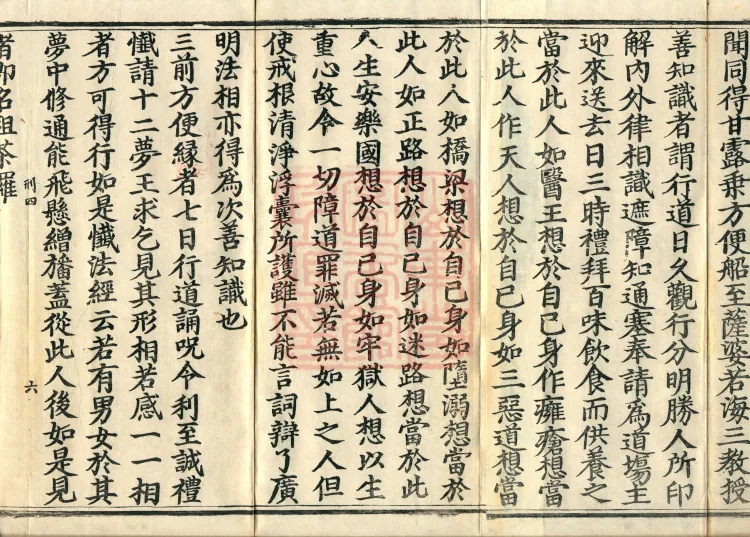 聞同得甘露乗方便船至薩婆若海三教授
善知識者謂行道日久觀行分明勝人所印
解内外律相識遮障知通塞奉請為道場主
迎來送去日三時禮拜百味飲食而供養之
當於此人如醫王想於自己身作癰瘡想當
於此人作天人想於自己身如三惡道想當
於此人如橋梁想於自己身如墮溺想當於
此人如正路想於自己身如迷路想當於此
人生安樂國想於自己身如牢獄人想以生
重心故令一切障道罪滅若無如上之人但
使戒根清淨浮囊所護雖不能言詞辯了廣
明法相亦得為次善知識也
三前方便緣者七日行道誦呪令利至誠禮
懺請十二夢王求乞見其形相若感一一相
者方可得行如是懺法經云若有男女於其
刑四
六
夢中修通能飛懸繒旛蓋從此人後如是見
者即名袒荼羅